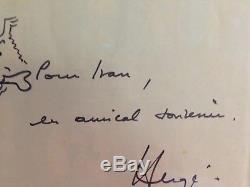 Pour Ivan,
en amical souvenir.
Hergé.